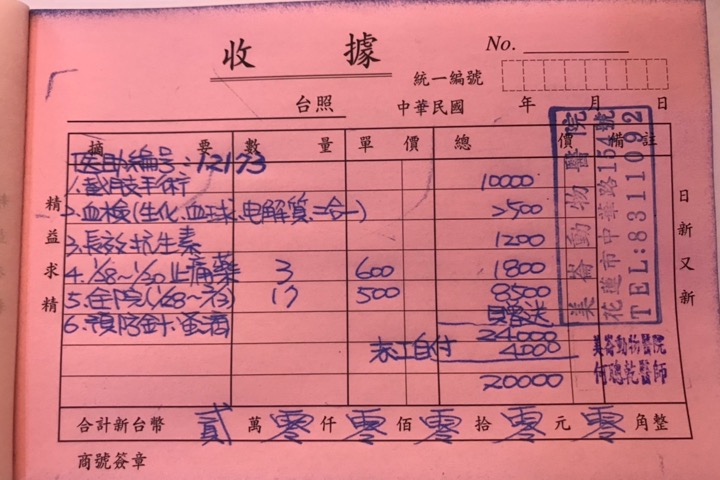 收 據
No.
統一編號
台照 中華民國 年 月 日
摘 要 數 量 單 價 總 價 備 註
醫助編號:12173
1.截肢手術 10000
2.血檢(生化.血球.电解質三合一) 2500
3.長效抗生素 1200
4. 1/28~1/30止痛藥 3 600 1800
5.住院(1/28~2/3) 17 500 8500
6.預防針.蚤滴 贈送
24000
自付 4000
20000
合計新台幣 貳 萬 零 仟 零 佰 零 拾 零 元 零 角整
商號簽章
精益求精
日新又新
美崙動物醫院
花蓮市中華路154號
TEL:8311092
美崙動物醫院
何聰乾醫師